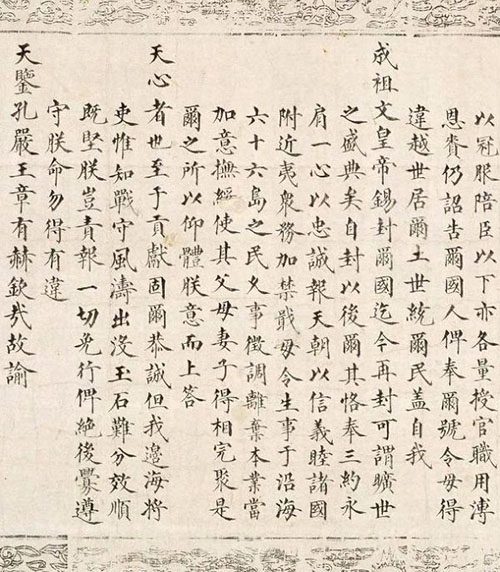 以冠服陪臣以下亦各量授官職用溥
恩賚仍詔告爾國人俾奉爾號令毋得
違越世居爾土世統爾民盖自我
成祖文皇帝錫封爾國迄今再封可謂曠世
之盛典矣自封以後爾其恪奉三約永
肩一心以忠誠報天朝以信義睦諸國
附近夷衆務加禁戢毋令生事于沿海
六十六島之民久事徵調離棄本業當
加意撫綏使其父母妻子得相完聚是
爾之所以仰體朕意而上答
天心者也至于貢獻固爾恭誠但我邊海將
吏惟知戰守風濤出没玉石難分效順
既堅朕豈責報一切免行俾絶後釁遵
守朕命勿得有違
天鑒孔嚴王章有赫欽哉故諭